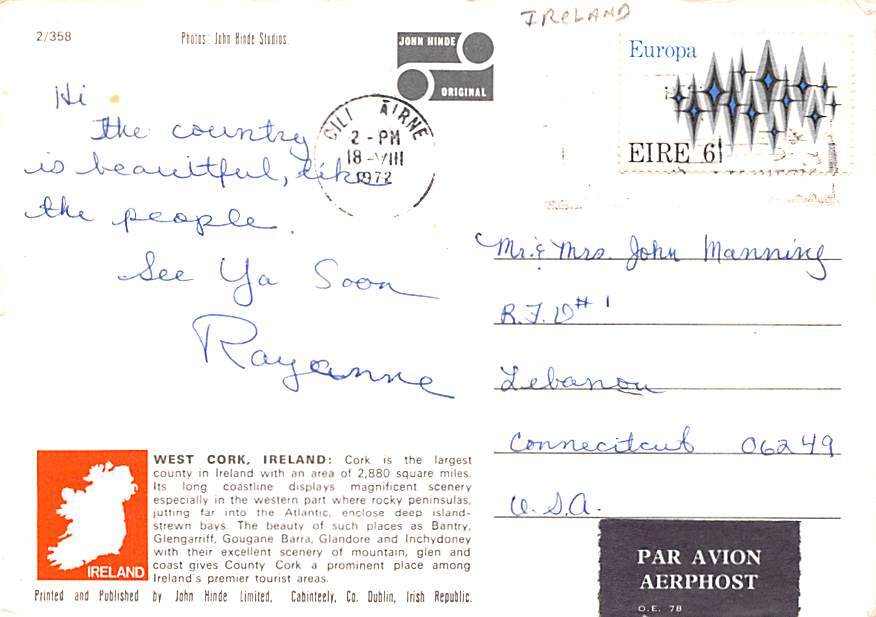 IRELAND
2/358
Photos: John Hinde Studios.
JOHN HINDE
ORIGINAL
Europa
EIRE 6
CILL AIRNE
2 - PM
18 - VIII
1972
Hi
the country
is beauitful, like
the people.
See Ya Soon
Rayanne
Mr. & Mrs. John Manning
R.F.D # 1
Lebanon
Connecitcut 06249
U.S.A.
WEST CORK, IRELAND: Cork is the largest
county in Ireland with an area of 2,880 square miles.
Its long coastline displays magnificent scenery
especially in the western part where rocky peninsulas,
jutting far into the Atlantic, enclose deep island-
strewn bays. The beauty of such places as Bantry,
Glengarriff, Gougane Barra, Glandore and Inchydoney
with their excellent scenery of mountain, glen and
coast gives County Cork a prominent place among
Ireland's premier tourist areas.
IRELAND
Printed and Published by John Hinde Limited, Cabinteely, Co. Dublin, Irish Republic.
PAR AVION
AERPHOST
O.E. 78